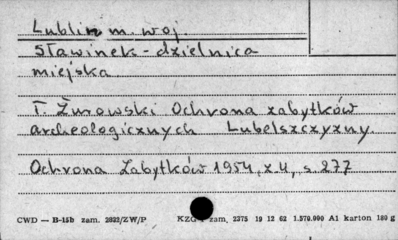 Lublin m. woj.
Sławinek - dzielnica
miejska
T. Żurowski Ochrona zabytków
archeologicznych Lubelszczyzny.
Ochrona Zabytków 1954, z.4, s.277
CWD — B-15b zam. 2822/ZW/P KZG zam, 2375 19 12 62 1.570.000 A1 karton 180 g